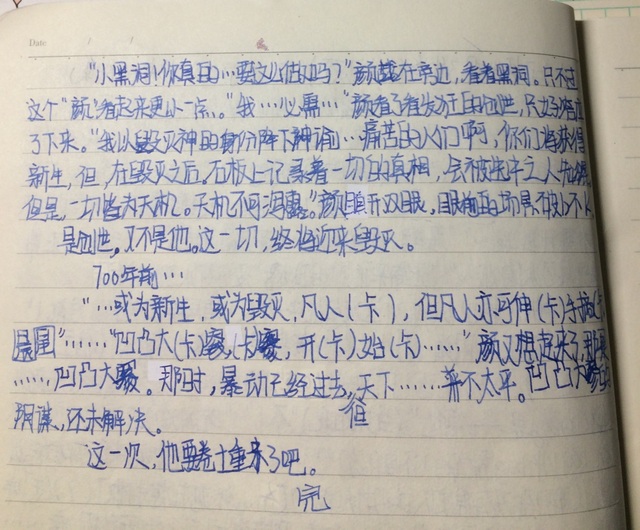 Date / /
"小黑洞!你真的…要这么做吗?"颜戴在旁边,看着黑洞。只不过
这个"颜"看起来更小一点。"我…必需…"颜看了看发狂的创世,只好答应
了下来。"我以毁灭神的身份降下神谕…痛苦的人们啊,你们将获得
新生,但,在毁灭之后。石板上记录着一切的真相,会被选中之人
但是,一切皆为天机。天机不可泄露。"颜睁开双眼,眼前的场景
是创世,又不是他。这一切,终将迎来毁灭。
700年前…
"…或为新生,或为毁灭,凡人(卡),但凡人亦可伸(卡)手摘(卡)
晨星"……"凹凸大(卡)赛,(卡)赛,开(卡)始(卡)……"颜又想起来了,那
……凹凸大赛。那时,暴动已经过去,天下……并不太平。凹凸大赛的
但
阴谋,还未解决。
这一次,他要卷土重来了吧。
完